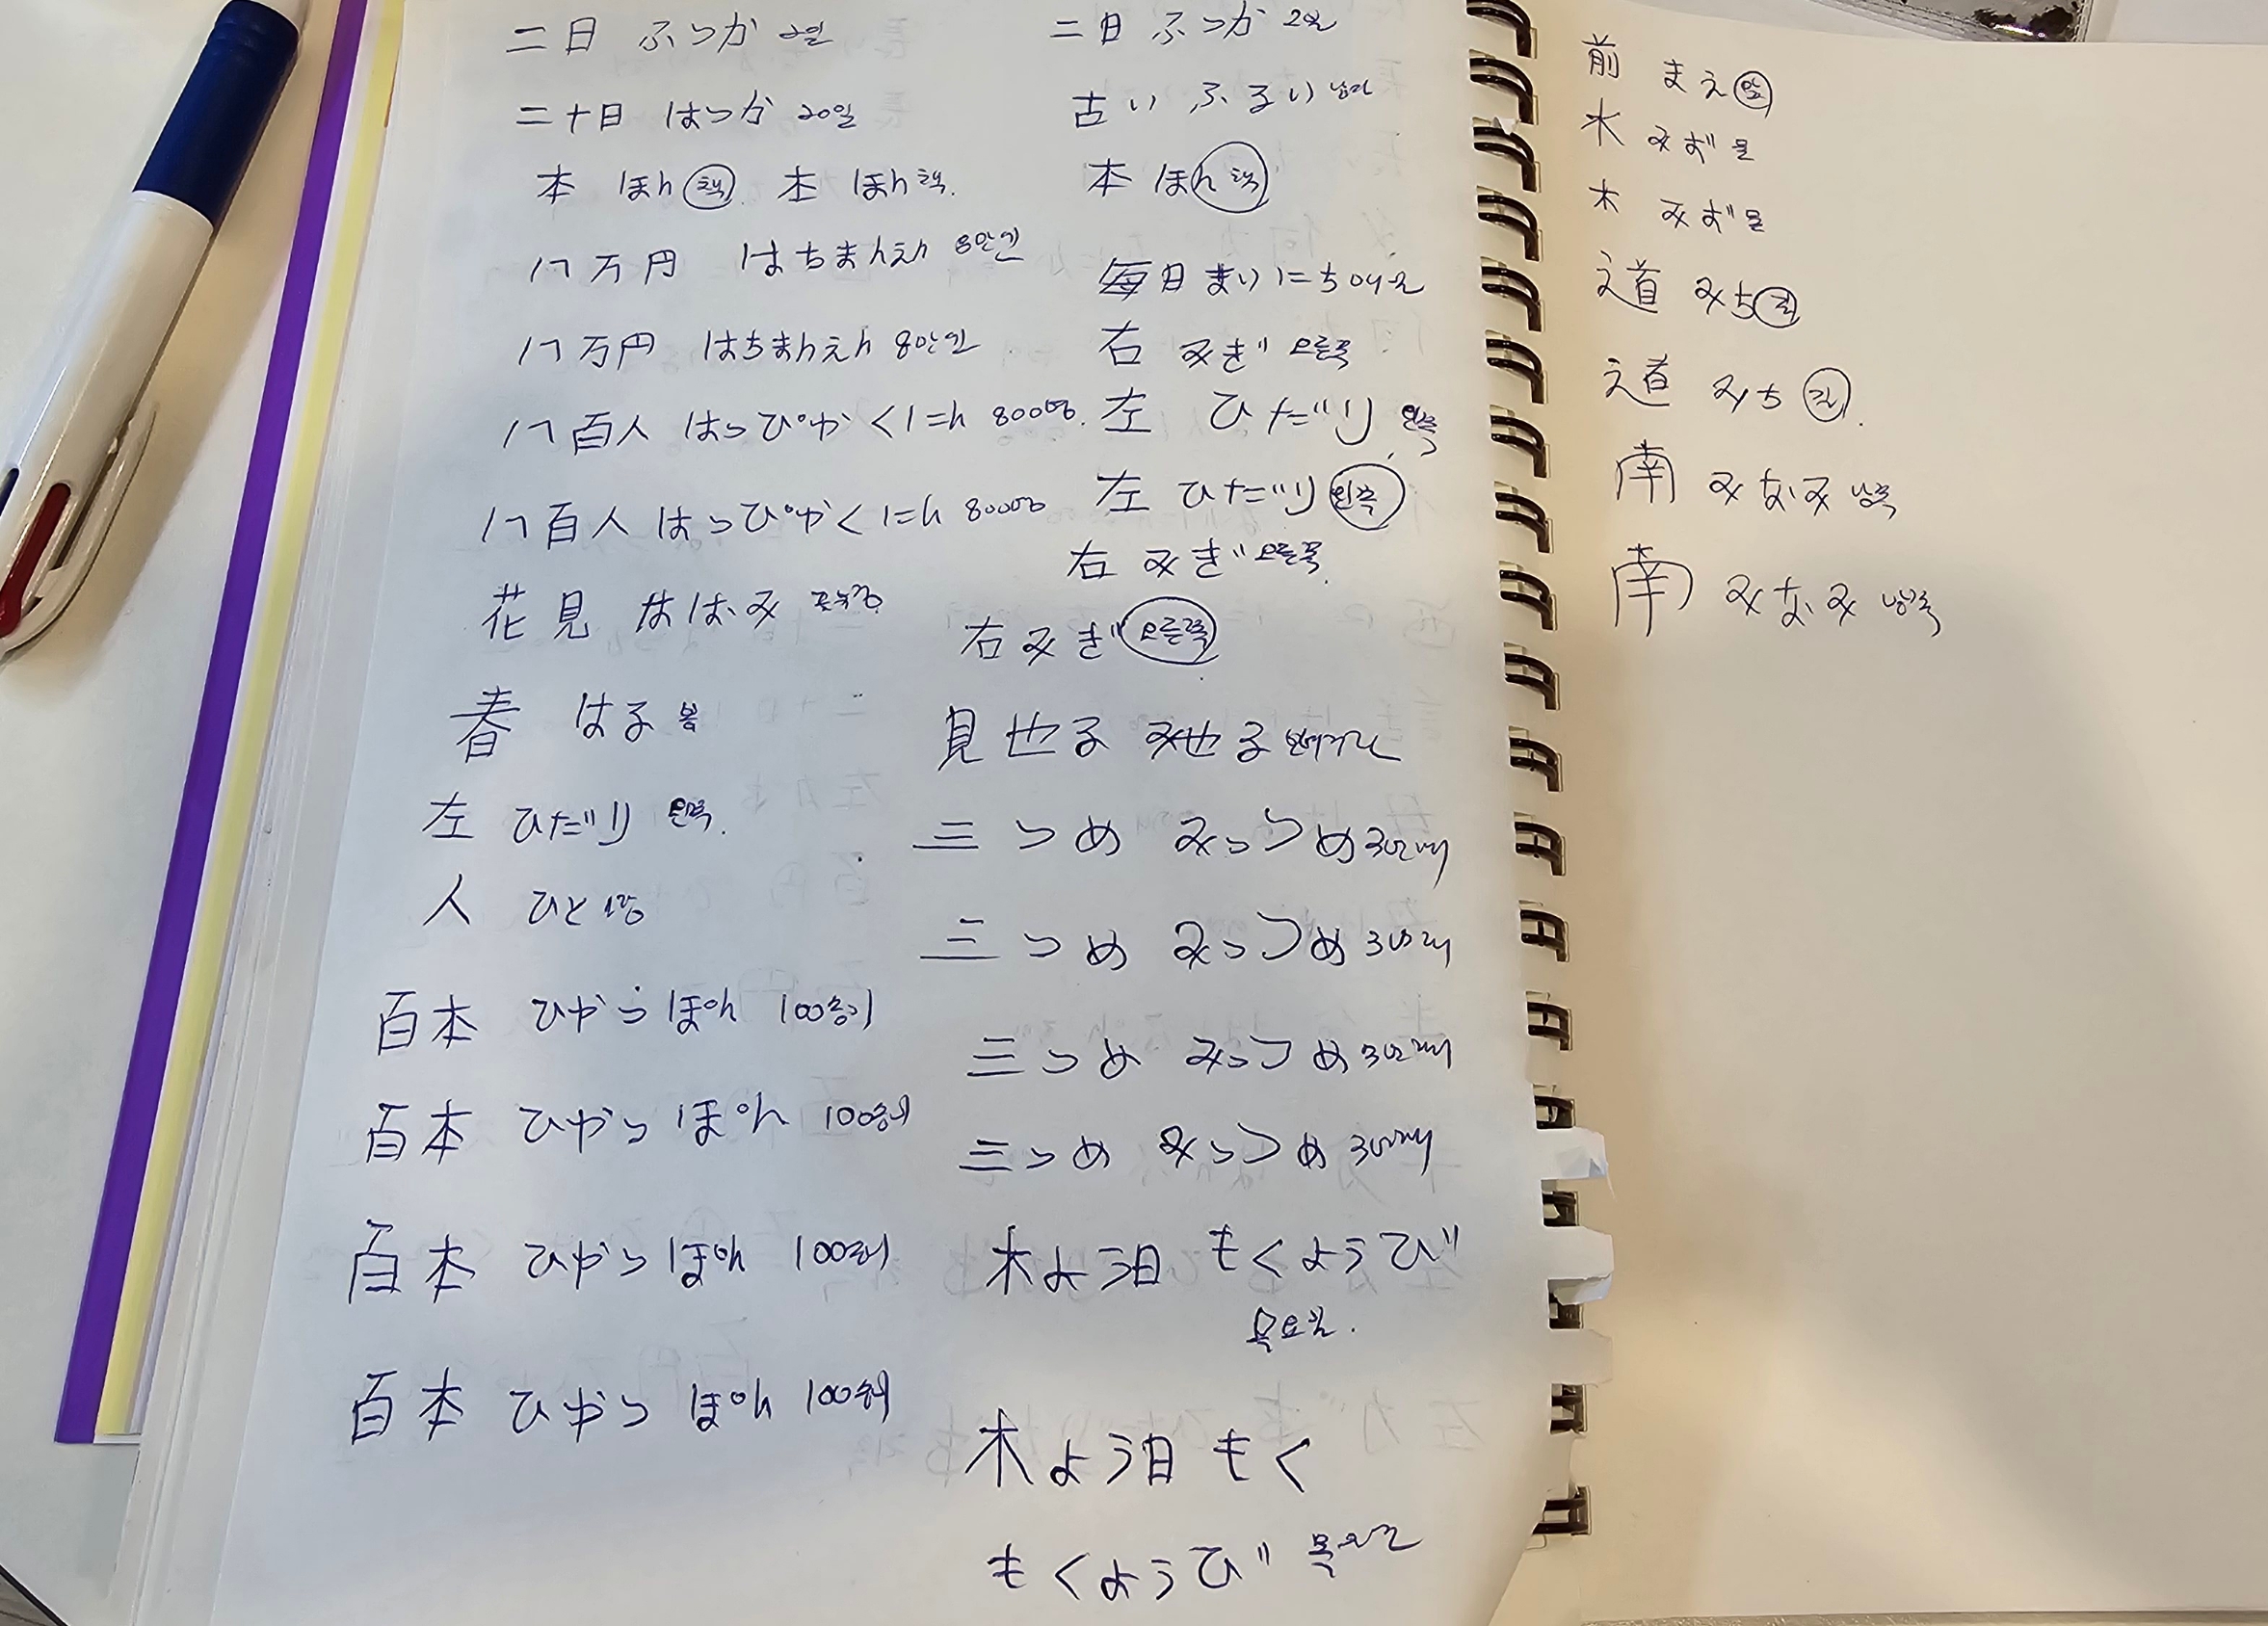 二日 ふつか 2일
二十日 はつか 20일
本 ほん 책 本 ほん 책.
八万円 はちまんえん 8만엔
八万円 はちまんえん 8만엔
八百人 はっぴゃくにん 800명.
八百人 はっぴゃくにん 800명
花見 はなみ
春 はる 봄
左 ひだり 왼쪽.
人 ひと 사람
百本 ひゃっぽん 100송이
百本 ひゃっぽん 100송이
百本 ひゃっぽん 100송이
百本 ひゃっぽん 100송이
二日 ふつか 2일
古い ふるい 낡다
本 ほん 책
毎日 まいにち 매일
右 みぎ 오른쪽
左 ひだり 왼쪽
左 ひだり 왼쪽
右 みぎ 오른쪽.
右 みぎ 오른쪽
見せる みせる 보여주다
三つめ みっつめ 3번째
三つめ みっつめ 3번째
三つめ みっつめ 3번째
三つめ みっつめ 3번째
木よう日 もくようび
목요일.
木よう日 もく
もくようび 목요일
前 まえ 앞
水 みず 물
水 みず 물
道 みち 길
道 みち 길.
南 みなみ 남쪽
南 みなみ 남쪽